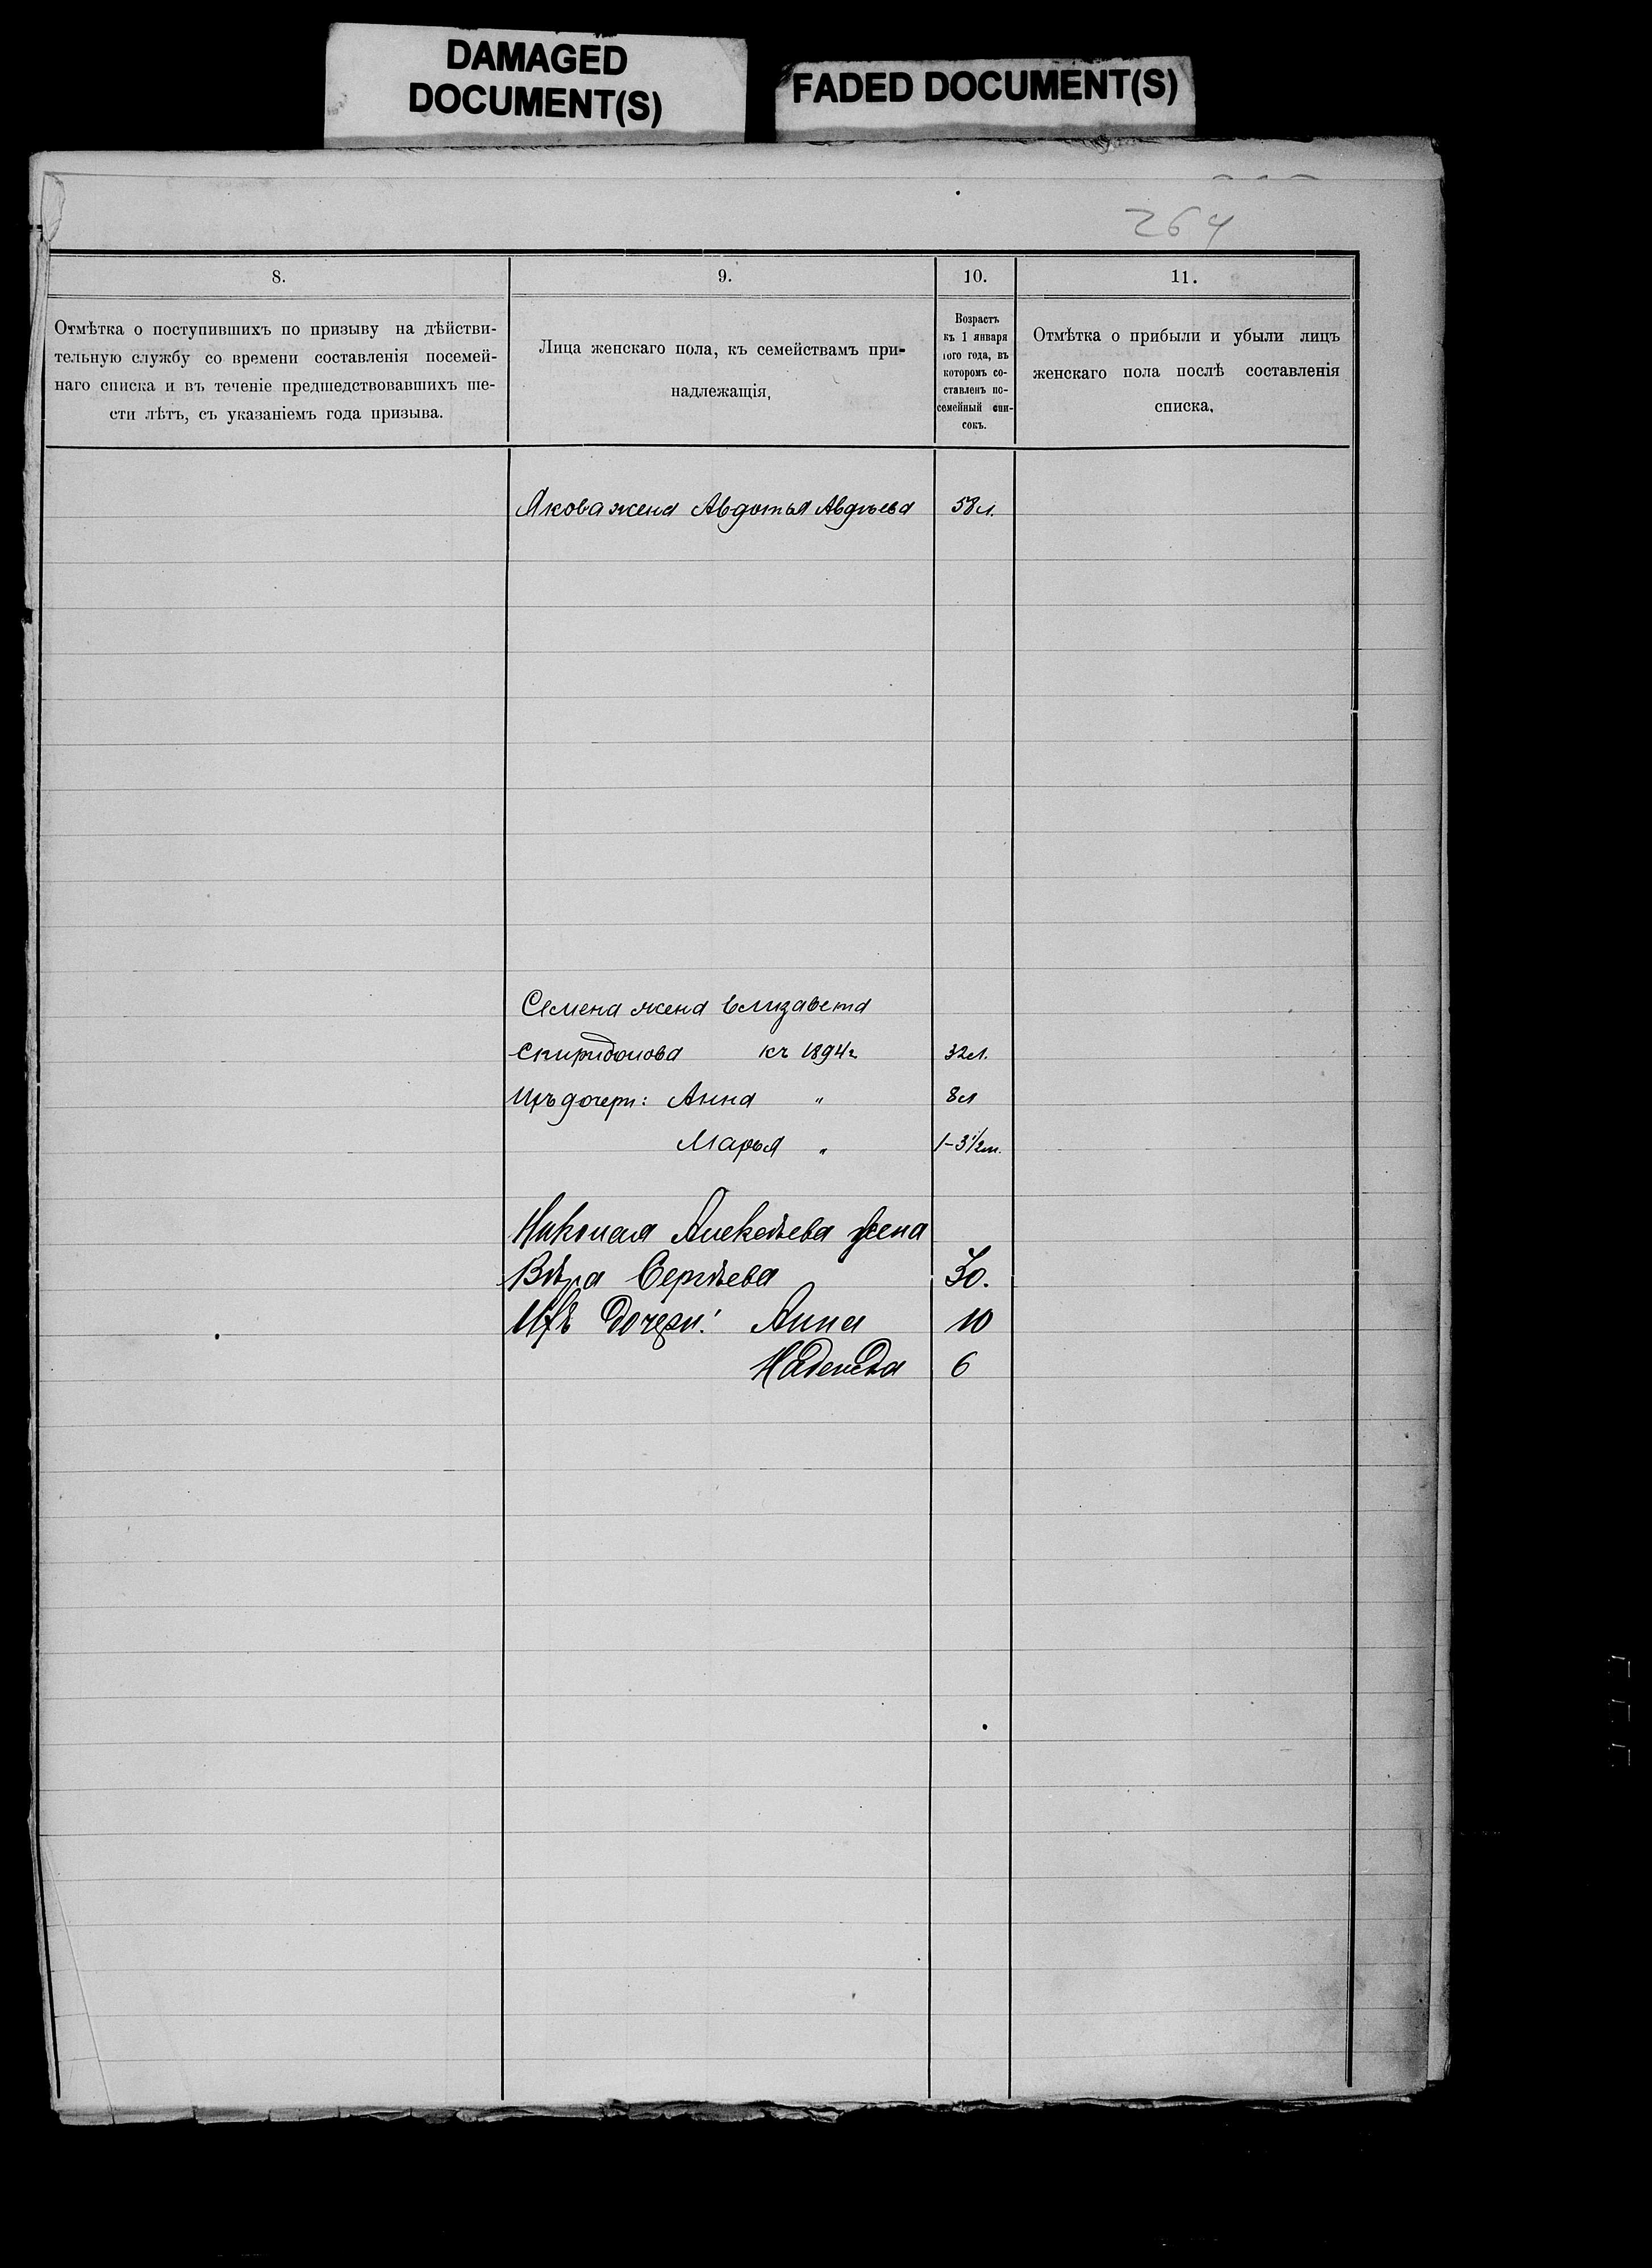 DAMAGED
DOCUMENT(S)
FADED DOCUMENT(S)
264
8.
9.
10.
11.
Отмѣтка о поступившихъ по призыву на дѣйстви-
тельную службу со времени составленія посемей-
наго списка и въ теченіе предшедствовавшихъ ше-
сти лѣтъ, съ указаніемъ года призыва.
Лица женскаго пола, къ семействамъ при-
надлежащія,
Возрастъ
къ 1 января
того года, въ
которомъ со-
ставленъ по-
семейный спи-
сокъ.
Отмѣтка о прибыли и убыли лицъ
женскаго пола послѣ составленія
списка.
Якова жена Авдотья Авдѣева 58 л.
Семена жена Елизавета
Скиридонова къ 1894 г 32 л.
Ихъ дочери: Анна " 8 л
Марья " 1-3½ м.
Николая Алексѣева жена
Вѣра Сергѣева 30.
Ихъ дочери: Анна 10
Надежда 6